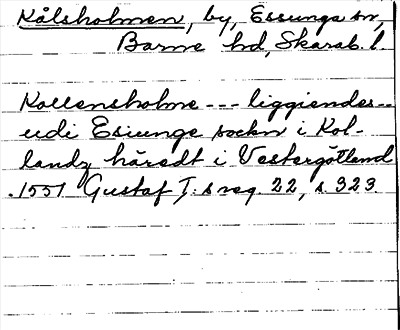 Kålsholmen, by, Essunga sn,
Barne hd, Skarab. l.
Kollensholme --- liggiendes --
udi Esiunge sockn i Kol-
landz häredt i Vestergötland
.1551 Gustaf I:s reg. 22, s. 323.